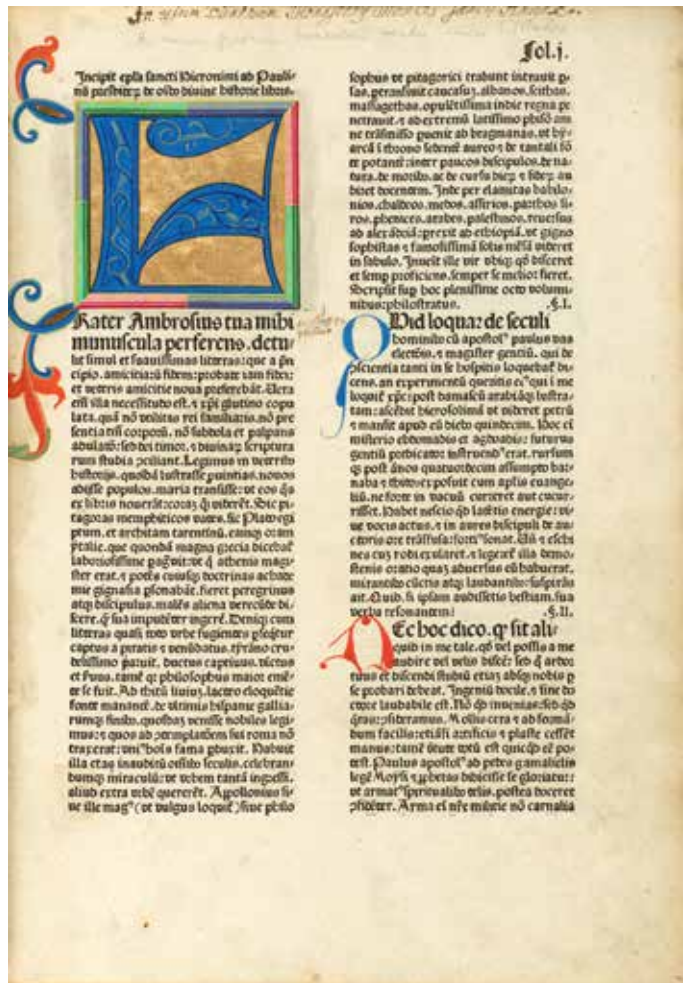 Fol.j.
Incipit epla sancti Hieronimi ad Pauli-
nū presbiteꝝ de oībꝰ divine historie libris.
F
Rater Ambrosius tua mihi
munuscula perferens. detu-
lit simul et suavissimas litteras: que a prī
cipio. amicitiaꝝ fidem: probate iam fidei:
et veteris amicitie nova preferebāt. Uera
enī illa necessitudo est. ⁊ xp̄i glutino copu
lata. quā nō vtilitas rei familiaris. nō pre
sentia tm̄ corpoꝝ. nō subdola et palpans
adulatō: sed dei timor. ⁊ divinaꝝ scriptura
rum studia ꝯciliant. Legimus in veteribꝰ
historijs. quosdā lustrasse ꝓuintias. novos
adiisse populos. maria transisse: vt eos qͦs
ex libris noverāt: coraꝫ qꝫ viderēt. Sic pi-
tagoras memphiticos vates. sic Plato egi
ptum. et architam tarentinū. eamqꝫ oram
ytalie. que quondā magna grecia dicebat̄
laboriosissime pagͣvit: vt q̄ athenis magi-
ster erat. ⁊ potēs cuiusqꝫ doctrinas achade
mie gignasia ꝑsonabāt. fieret peregrinus
atqꝫ discipulus. malēs aliena verecūde di-
scere. q̄ꝫ sua impudēter ingerē. Deniqꝫ cum
litteras quasi toto orbe fugientes ꝑseqͥtur
captus a piratis ⁊ venūdatus. tyrāno cru-
delissimo paruit. ductus captivus. victus
et ẜvus. tamē qꝛ philosophus maior emē-
te se fuit. Ad thitū liviuꝫ. lacteo eloquētie
fonte manantē. de vltimis hispanie gallia-
rumqꝫ finibꝰ. quosdaꝫ venisse nobiles legi-
mus: ⁊ quos ad ꝯtemplatōem sui roma nō
traxerat: vniꝰ hoīs fama ꝑduxit. Habuit
illa etas inauditū oībꝰ seculis. celebran-
dumqꝫ miraculū: vt vrbem tantā ingressi.
aliud extra vrbē quererēt. Appollonius si-
ve ille magꝰ (vt vulgus loquit̄) sive philo
sophus vt pitagorici tradunt intravit ꝑ-
sas. pertransivit caucasuꝫ. albanos. scithas.
massagethas. opulētissima indie regna pe
netravit. ⁊ ad extremū latissimo phisō am
ne trāsmisso ꝑvenit ad bragmanas. vt hy-
arcā ī throno sedentē aureo ⁊ de tantali fō
te potantē: inter paucos discipulos. de na-
tura. de moribꝰ. ac de cursu dieꝝ ⁊ sideꝝ au
diret docentem. Inde per elamitas babilo-
nios. chaldeos. medos. assirios. parthos si-
ros. phenices. arabes. palestinos. reversus
ad alexādriā: ꝑrexit ad ethiopiā. vt gigno
sophistas ⁊ famosissimā solis mēsā videret
in sabulo. Invēit ille vir vbiqꝫ qͦd disceret
et semꝑ proficiens. semper se melior fieret.
Scripsit suꝑ hoc plenissime octo volumi-
nibus: philostratus. .§.I.
Quid loquar de seculi
hominibꝰ cū apostolꝰ paulus vas
electōis. ⁊ magister gentiū. qui de
ꝯscientia tanti in se hospitis loquebat̄ di-
cens. an experimentū queritis eiꝰ qui ī me
loquit̄ xp̄c: post damascū arabiāqꝫ lustra-
tam: ascēdit hierosolimā vt videret petrū
⁊ mansit apud eū diebꝰ quindecim. Hoc eī
misterio ebdomadis et ogdoadis: futurus
gentiū predicator instruendꝰ erat. rursum
qꝫ post ānos quatuordecim assumpto bar-
naba ⁊ thito: exposuit cum aplīs evange-
liū. ne forte in vacuū curreret aut cucur-
risset. Habet nescio qͦd latētis energie: vi-
ve vocis actus. ⁊ in aures discipuli de au-
ctoris ore trāsfusa: fortiꝰ sonat. Uñ ⁊ eschi
nes cuꝫ rodi exularet. ⁊ legeret̄ illa demo-
stenis oratio quaꝫ adversus eū habuerat.
mirantibꝰ cūctis atqꝫ laudantibꝰ: suspirās
ait. Quid. si ipsam audissetis bestiam. sua
verba resonantem: .§.II.
NEc hoc dico. qꝙ sit ali-
quid in me tale. qd vel possis a me
audire vel velis discē: sed qꝙ ardor
tuus et discendi studiū etiaꝫ absqꝫ nobis ꝑ
se probari debeat. Ingeniū docile. ⁊ sine do
ctore laudabile est. Nō qͦd invenias: sed qͦd
q̄ras: ꝯsideramus. Mollis cera ⁊ ad formā-
dum facilis: etiāsi artificis ⁊ plaste cessēt
manus: tamē vtute totū est quicqͥd eē po-
test. Paulus apostolꝰ ad pedes gamalielis
legē Moysi ⁊ ꝓphetas didicisse se gloriatur:
vt armatꝰ spiritualibꝰ telis. postea doceret
ꝯfidēter. Arma eī nr̄e militie nō carnalia